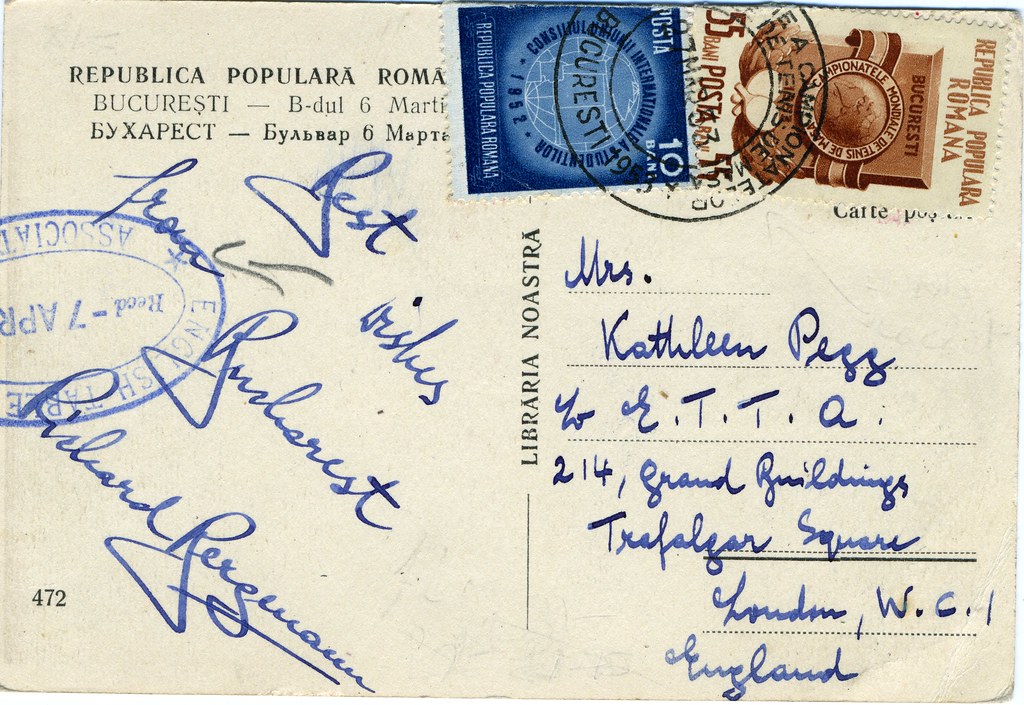 REPUBLICA POPULARĂ ROMÂ
BUCUREȘTI — B-dul 6 Marti
БУХАРЕСТ — Бульвар 6 Марта
Best
wishes
from
Bucharest
Richard Bergmann
472
LIBRĂRIA NOASTRĂ
POSTA
CONSILIUL UNIUNII INTERNATIONALE A STUDENTILOR
1952
REPUBLICA POPULARA ROMANA
10
BANI
55
BANI
POSTA
55
CAMPIONATELE MONDIALE DE TENIS DE MASA
BUCURESTI
REPUBLICA POPULARA
ROMANA
BUCURESTI
1953
Carte poș
Mrs.
Kathleen Pegg
c/o E.T.T.A.
214, Grand Buildings
Trafalgar Square
London, W.C.1
England
ENGLISH TABLE
ASSOCIAT
Recd -7 APR